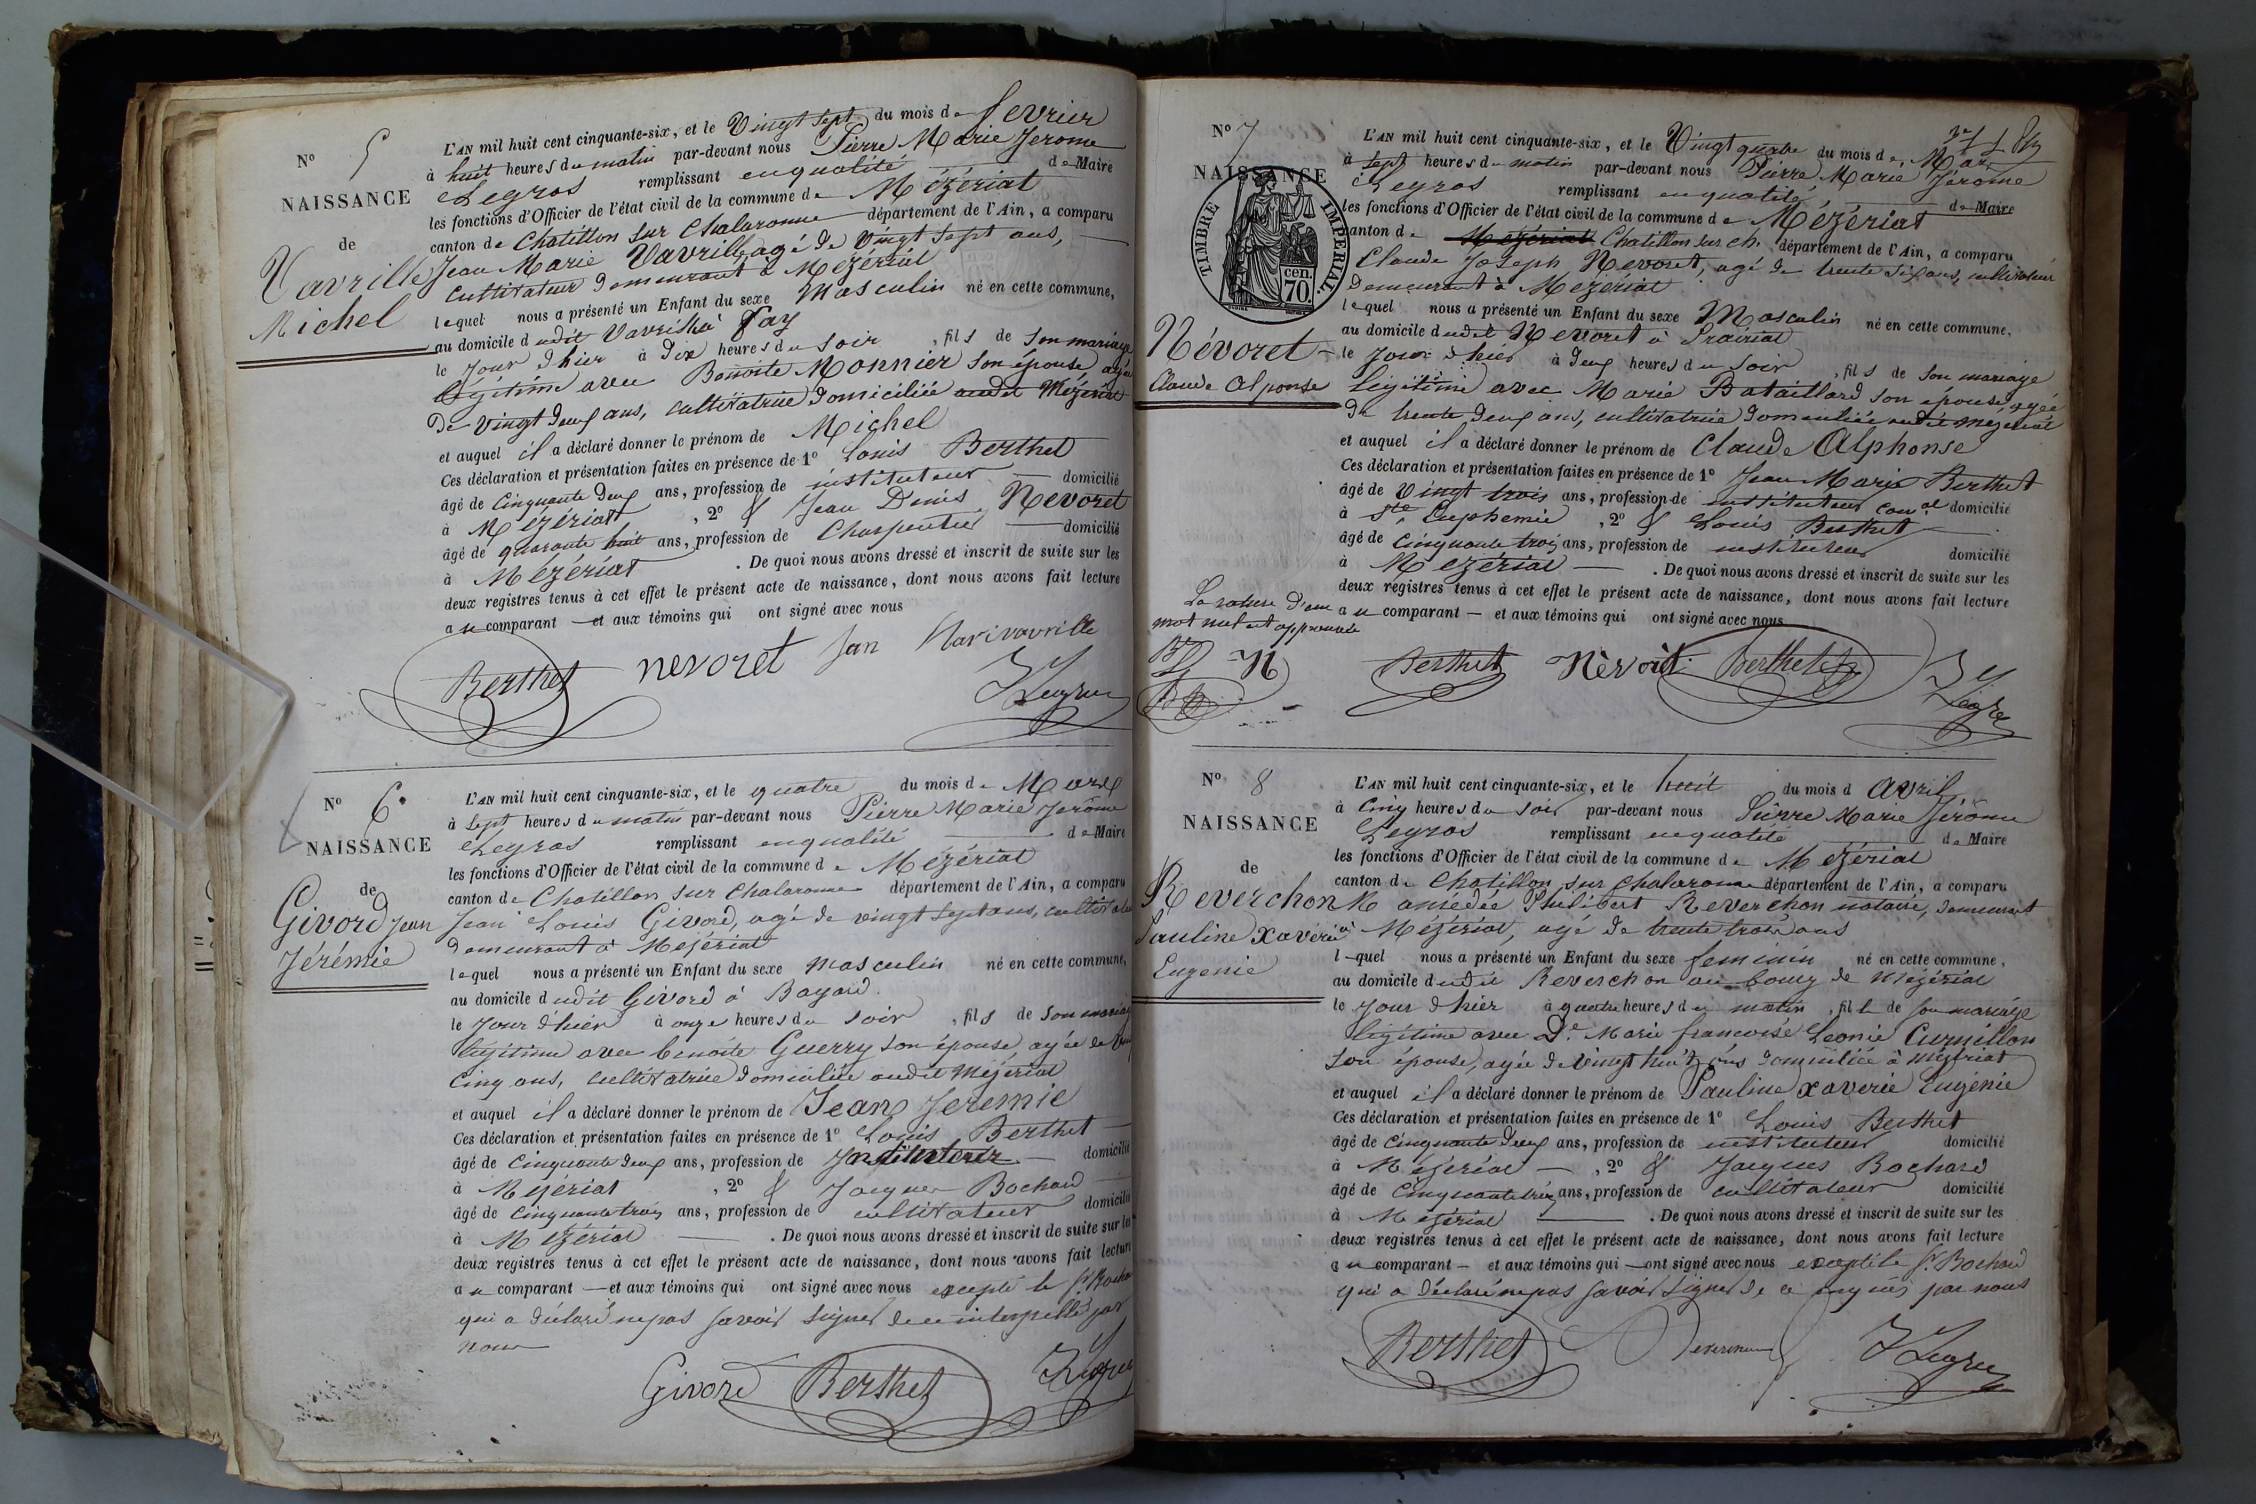 N° 5
NAISSANCE
de
Vavrille
Michel
L'AN mil huit cent cinquante-six, et le Vingt sept du mois de fevrier
à huit heures du matin par-devant nous Pierre Marie Jerome
Legros remplissant en qualité de Maire
les fonctions d'Officier de l'état civil de la commune de Mézériat
canton de Chatillon sur Chalaronne département de l'Ain, a comparu
Jean Marie Vavrille agé de vingt sept ans,
cultivateur demeurant à Mezériat
lequel nous a présenté un Enfant du sexe Masculin né en cette commune,
au domicile dudit Vavrille à Fay
le jour d'hier à dix heures du soir, fils de son mariage
légitime avec Benoite Monnier son épouse agée
de vingt deux ans, cultivatrice domiciliée audit Mézériat
et auquel il a déclaré donner le prénom de Michel
Ces déclaration et présentation faites en présence de 1° Louis Berthet
âgé de Cinquante deux ans, profession de instituteur domicilié
à Mézériat, 2° & Jean Denis Nevoret
âgé de quarante huit ans, profession de Charpentier domicilié
à Mézériat. De quoi nous avons dressé et inscrit de suite sur les
deux registres tenus à cet effet le présent acte de naissance, dont nous avons fait lecture
au comparant et aux témoins qui ont signé avec nous
Berthet nevoret Jan Mari vavrille JLegros
N° 6.
NAISSANCE
de
Givord Jean
Jérémie
L'AN mil huit cent cinquante-six, et le quatre du mois de Mars
à sept heures du matin par-devant nous Pierre Marie Jerôme
Legros remplissant en qualité de Maire
les fonctions d'Officier de l'état civil de la commune de Mézériat
canton de Chatillon sur Chalaronne département de l'Ain, a comparu
Jean Louis Givord, agé de vingt sept ans, cultivateur
demeurant à Mezériat
lequel nous a présenté un Enfant du sexe masculin né en cette commune,
au domicile dudit Givord à Bayard.
le jour d'hier à onze heures du soir, fils de son mariage
légitime avec benoite Guerry son épouse agée de vingt
cinq ans, cultivatrice domiciliée audit Mézériat
et auquel il a déclaré donner le prénom de Jean Jeremie
Ces déclaration et présentation faites en présence de 1° Louis Berthet
âgé de Cinquante deux ans, profession de Instituteur domicilié
à Mezériat, 2° & Jacques Bochard
âgé de cinquante trois ans, profession de cultivateur domicilié
à Mézériat. De quoi nous avons dressé et inscrit de suite sur les
deux registres tenus à cet effet le présent acte de naissance, dont nous avons fait lecture
au comparant et aux témoins qui ont signé avec nous excepté le Sr Bochard
qui a déclaré ne pas savoir signer de ce interpellé par
nous
Givord Berthet JLegros
N° 7
NAISSANCE
TIMBRE IMPERIAL.
cen.
70.
Névoret
Claude Alponse
L'AN mil huit cent cinquante-six, et le Vingt quatre du mois de Mars
à sept heures du matin par-devant nous Pierre Marie Jérôme
Legros remplissant en qualité de Maire
les fonctions d'Officier de l'état civil de la commune de Mézériat
canton de Mezériat Chatillon sur ch. département de l'Ain, a comparu
Claude Joseph Nevoret, agé de trente six ans, cultivateur
demeurant à Mezériat.
lequel nous a présenté un Enfant du sexe Masculin né en cette commune.
au domicile dudit Nevoret à Prairial
le jour d'hier à deux heures du soir, fils de son mariage
légitime avec Marie Bataillard son épouse, agée
de trente deux ans, cultivatrice domiciliée audit Mezériat
et auquel il a déclaré donner le prénom de Claude Alphonse
Ces déclaration et présentation faites en présence de 1° Jean Marie Berthet
âgé de Vingt trois ans, profession de instituteur comal domicilié
à Ste Euphemie, 2° & Louis Berthet
âgé de cinquante trois ans, profession de instituteur domicilié
à Mezériat. De quoi nous avons dressé et inscrit de suite sur les
deux registres tenus à cet effet le présent acte de naissance, dont nous avons fait lecture
au comparant — et aux témoins qui ont signé avec nous
La rature d'un
mot nul est approuvée
N
Berthet Nèvoret Berthet JLegros
N° 8
NAISSANCE
de
Reverchon
Pauline Xaverie
Eugenie
L'AN mil huit cent cinquante-six, et le huit du mois d Avril
à cinq heures du soir par-devant nous Pierre Marie Jérôme
Legros remplissant en qualité de Maire
les fonctions d'Officier de l'état civil de la commune de Mézériat
canton de Chatillon sur Chalaronne département de l'Ain, a comparu
M amédée Philibert Reverchon notaire, demeurant
à Mézériat, agé de trente trois ans
lequel nous a présenté un Enfant du sexe feminin né en cette commune,
au domicile dudit Reverchon au bourg de Mézériat
le jour d'hier à quatre heures du matin, fille de son mariage
légitime avec De Marie francoise Leonie Curnillon
son épouse, agée de vingt huit ans domiciliée à Mézériat
et auquel il a déclaré donner le prénom de Pauline Xaverie Eugénie
Ces déclaration et présentation faites en présence de 1° Louis Berthet
âgé de Cinquante deux ans, profession de instituteur domicilié
à Mézériat —, 2° & Jacques Bochard
âgé de Cinquante trois ans, profession de cultivateur domicilié
à Mézériat. De quoi nous avons dressé et inscrit de suite sur les
deux registres tenus à cet effet le présent acte de naissance, dont nous avons fait lecture
au comparant — et aux témoins qui ont signé avec nous excepté le Sr Bochard
qui a déclaré ne pas savoir signer de ce enquis par nous
Berthet Reverchon JLegros